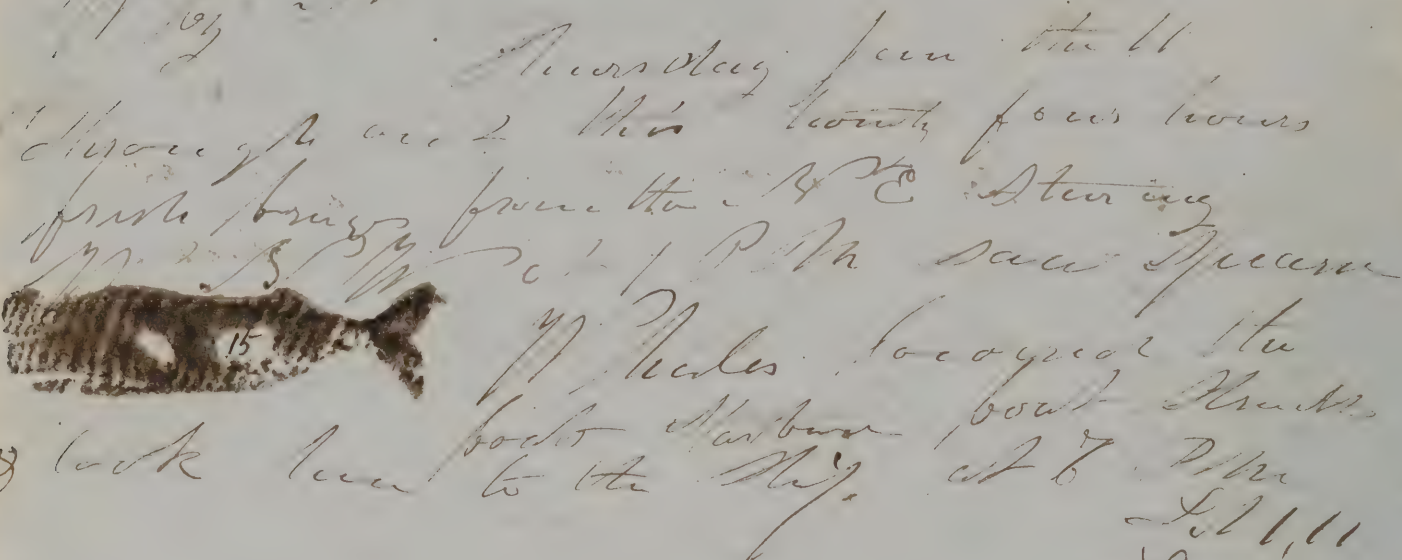 Thursday Jan the 11
through out this twenty four hours
fresh brieges from the N E Sturing
W at 1 P M saw Spearm
15
Whales lowered the
boats Starbord boat Struck
& took him to the Ship at 6 P M
Lat 1,11